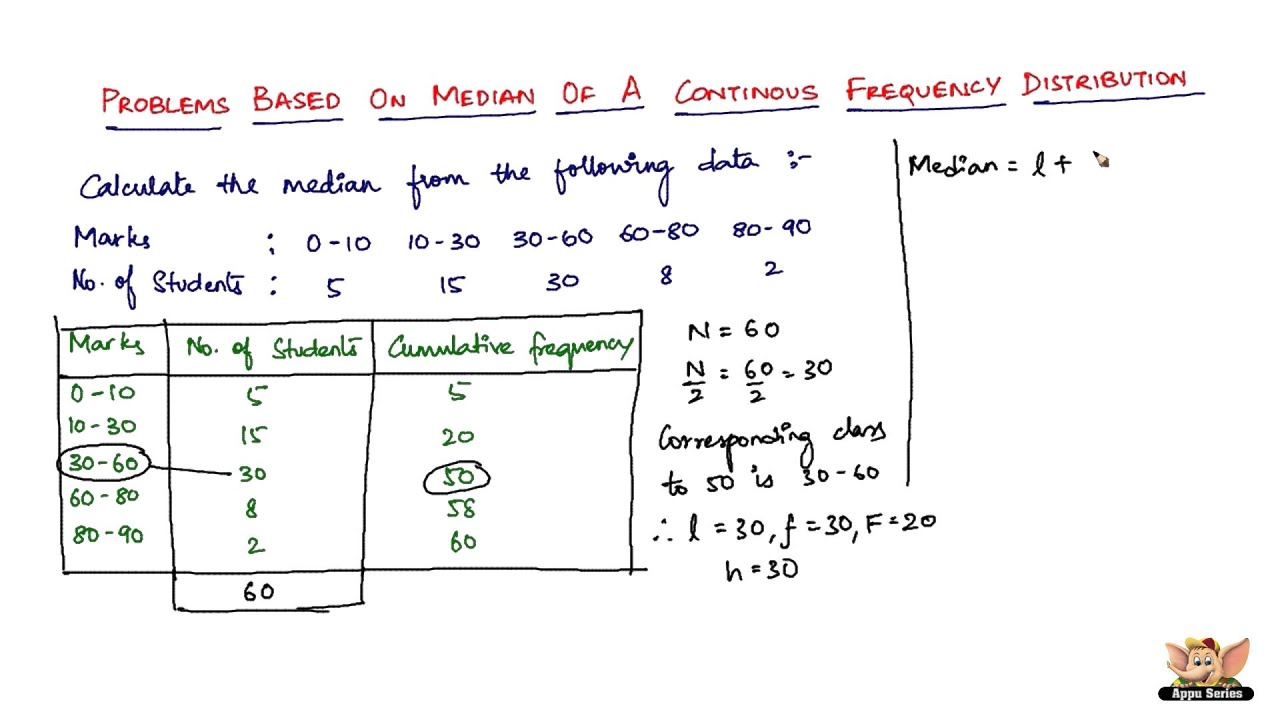 PROBLEMS BASED ON MEDIAN OF A CONTINOUS FREQUENCY DISTRIBUTION
Calculate the median from the following data :-
Marks : 0-10 10-30 30-60 60-80 80-90
No. of Students : 5 15 30 8 2
Marks No. of Students Cumulative frequency
0-10 5 5
10-30 15 20
30-60 30 50
60-80 8 58
80-90 2 60
60
N = 60
N/2 = 60/2 = 30
Corresponding class
to 50 is 30-60
∴ l = 30, f = 30, F = 20
h = 30
Median = l +
Appu Series